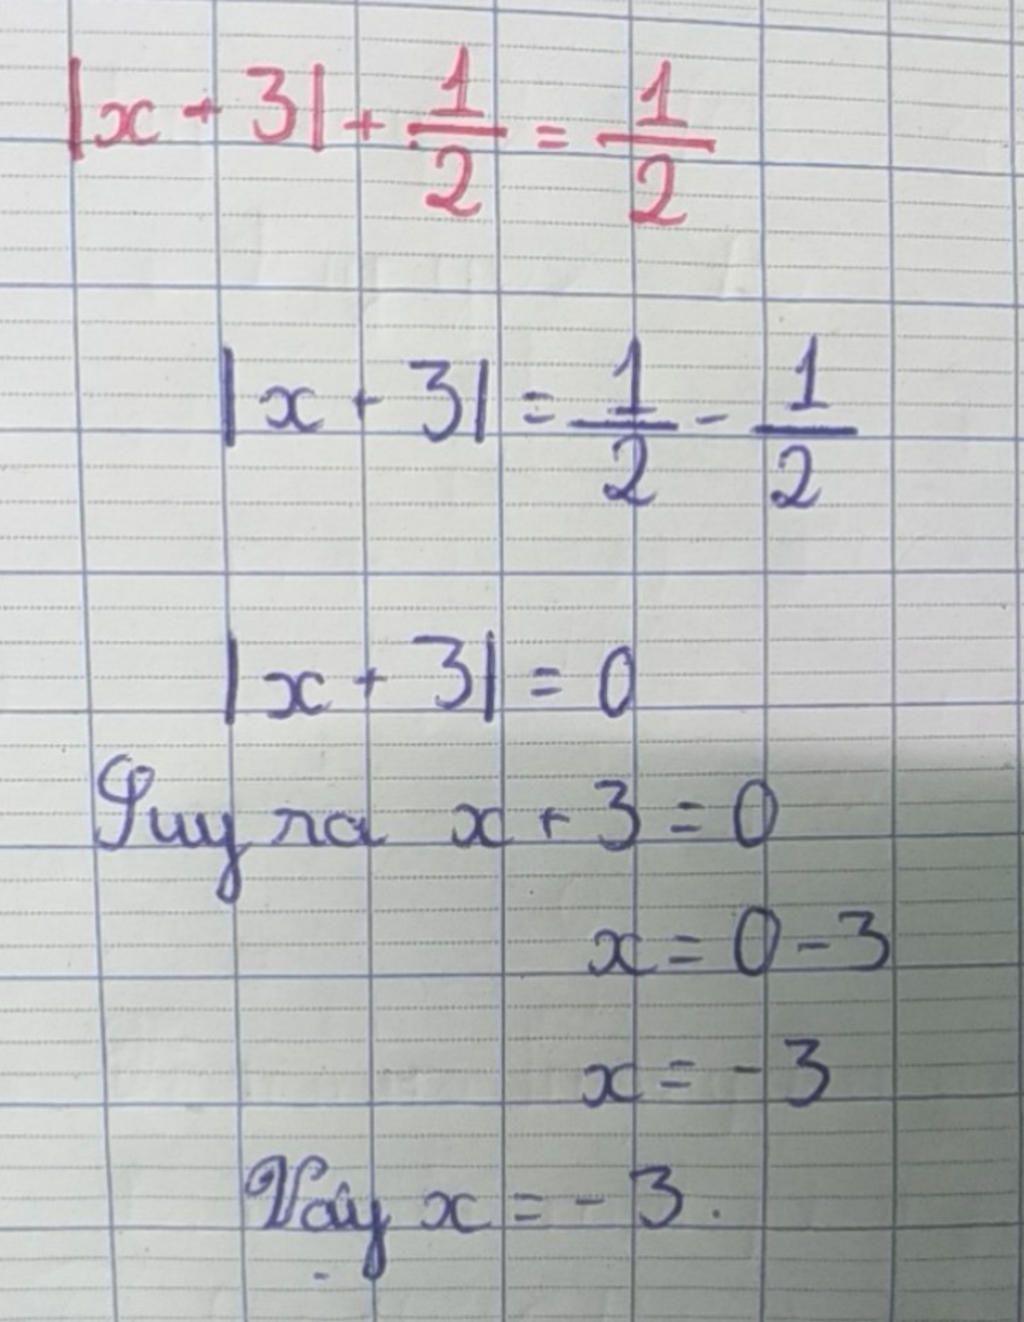 |x + 3| + 1/2 = 1/2
|x + 3| = 1/2 - 1/2
|x + 3| = 0
Suy ra x + 3 = 0
x = 0 - 3
x = - 3
Vậy x = - 3.